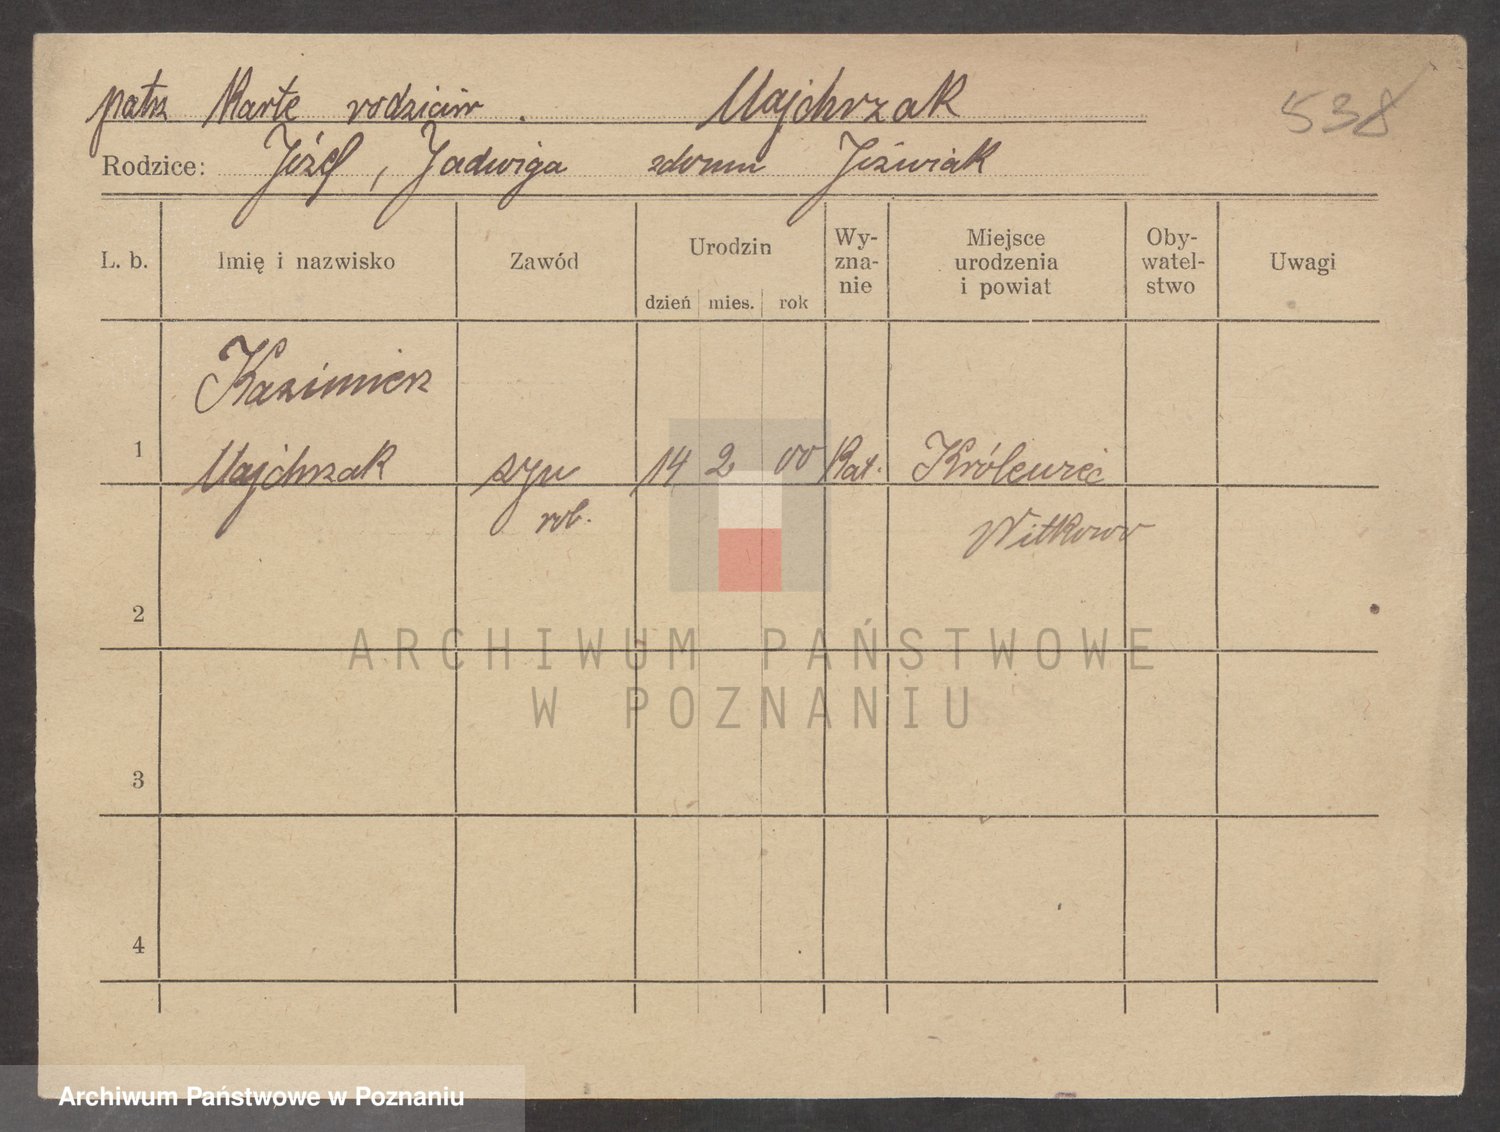 patrz Kartę rodziców. Majchrzak 538
Rodzice: Józef, Jadwiga zdomu Jóźwiak
L. b. Imię i nazwisko Zawód Urodzin dzień mies. rok Wy-zna-nie Miejsce urodzenia i powiat Oby-watel-stwo Uwagi
Kazimierz
1 Majchrzak syn 14 2 00 Kat. Królewiec
rob. Witkowo
2
3
4
ARCHIWUM PAŃSTWOWE
W POZNANIU
Archiwum Państwowe w Poznaniu